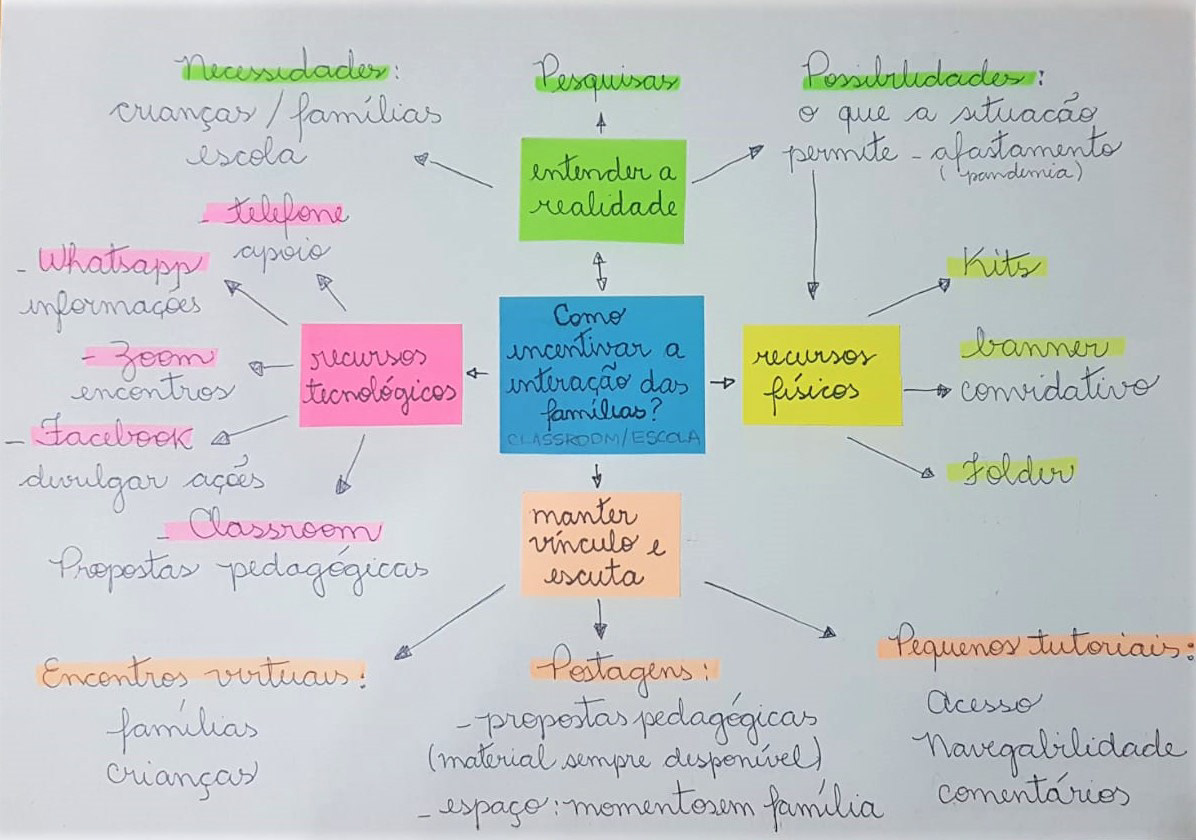 Necessidades:
crianças / famílias
escola
Pesquisas
Possibilidades:
o que a situacão
permite - afastamento
(pandemia)
entender a
realidade
- telefone
apoio
- Whatsapp
informações
- Zoom
encontros
- Facebook
divulgar ações
- Classroom
Propostas pedagógicas
recursos
tecnológicos
Como
incentivar a
interação das
famílias?
CLASSROOM/ESCOLA
recursos
físicos
Kits
banner
convidativo
Folder
manter
vínculo e
escuta
Encontros virtuais:
famílias
crianças
Postagens:
- propostas pedagógicas
(material sempre desponível)
- espaço: momentosem família
Pequenos tutoriais:
Acesso
Navegabilidade
comentários